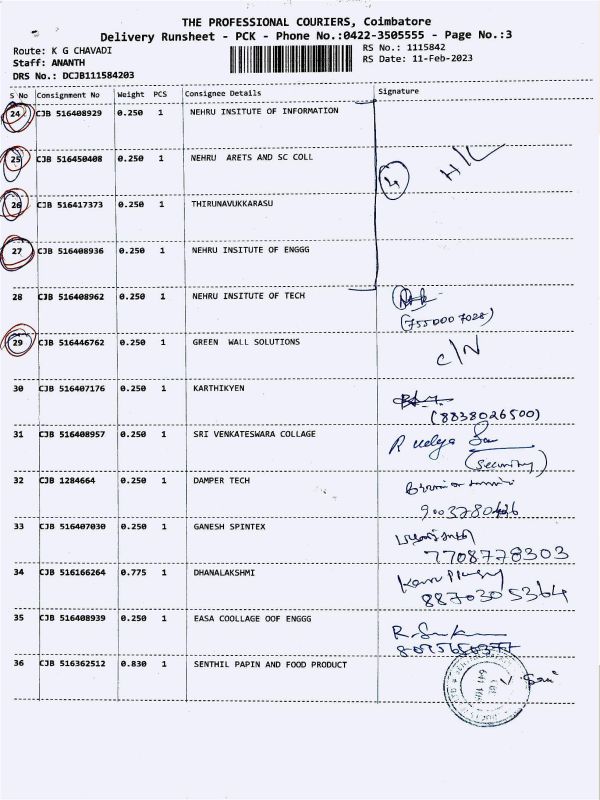 THE PROFESSIONAL COURIERS, Coimbatore
Delivery Runsheet - PCK - Phone No.:0422-3505555 - Page No.:3
Route: K G CHAVADI
RS No.: 1115842
Staff: ANANTH
RS Date: 11-Feb-2023
DRS No.: DCJB111584203
S No Consignment No Weight PCS Consignee Details Signature
24 CJB 516408929 0.250 1 NEHRU INSITUTE OF INFORMATION
25 CJB 516450408 0.250 1 NEHRU ARETS AND SC COLL
4 H/L
26 CJB 516417373 0.250 1 THIRUNAVUKKARASU
27 CJB 516408936 0.250 1 NEHRU INSITUTE OF ENGGG
28 CJB 516408962 0.250 1 NEHRU INSITUTE OF TECH
(7550007028)
29 CJB 516446762 0.250 1 GREEN WALL SOLUTIONS
C/N
30 CJB 516407176 0.250 1 KARTHIKYEN
(8838026500)
31 CJB 516408957 0.250 1 SRI VENKATESWARA COLLAGE
(Security)
32 CJB 1284664 0.250 1 DAMPER TECH
33 CJB 516407030 0.250 1 GANESH SPINTEX
7708778303
34 CJB 516166264 0.775 1 DHANALAKSHMI
8870305364
35 CJB 516408939 0.250 1 EASA COOLLAGE OOF ENGGG
36 CJB 516362512 0.830 1 SENTHIL PAPIN AND FOOD PRODUCT